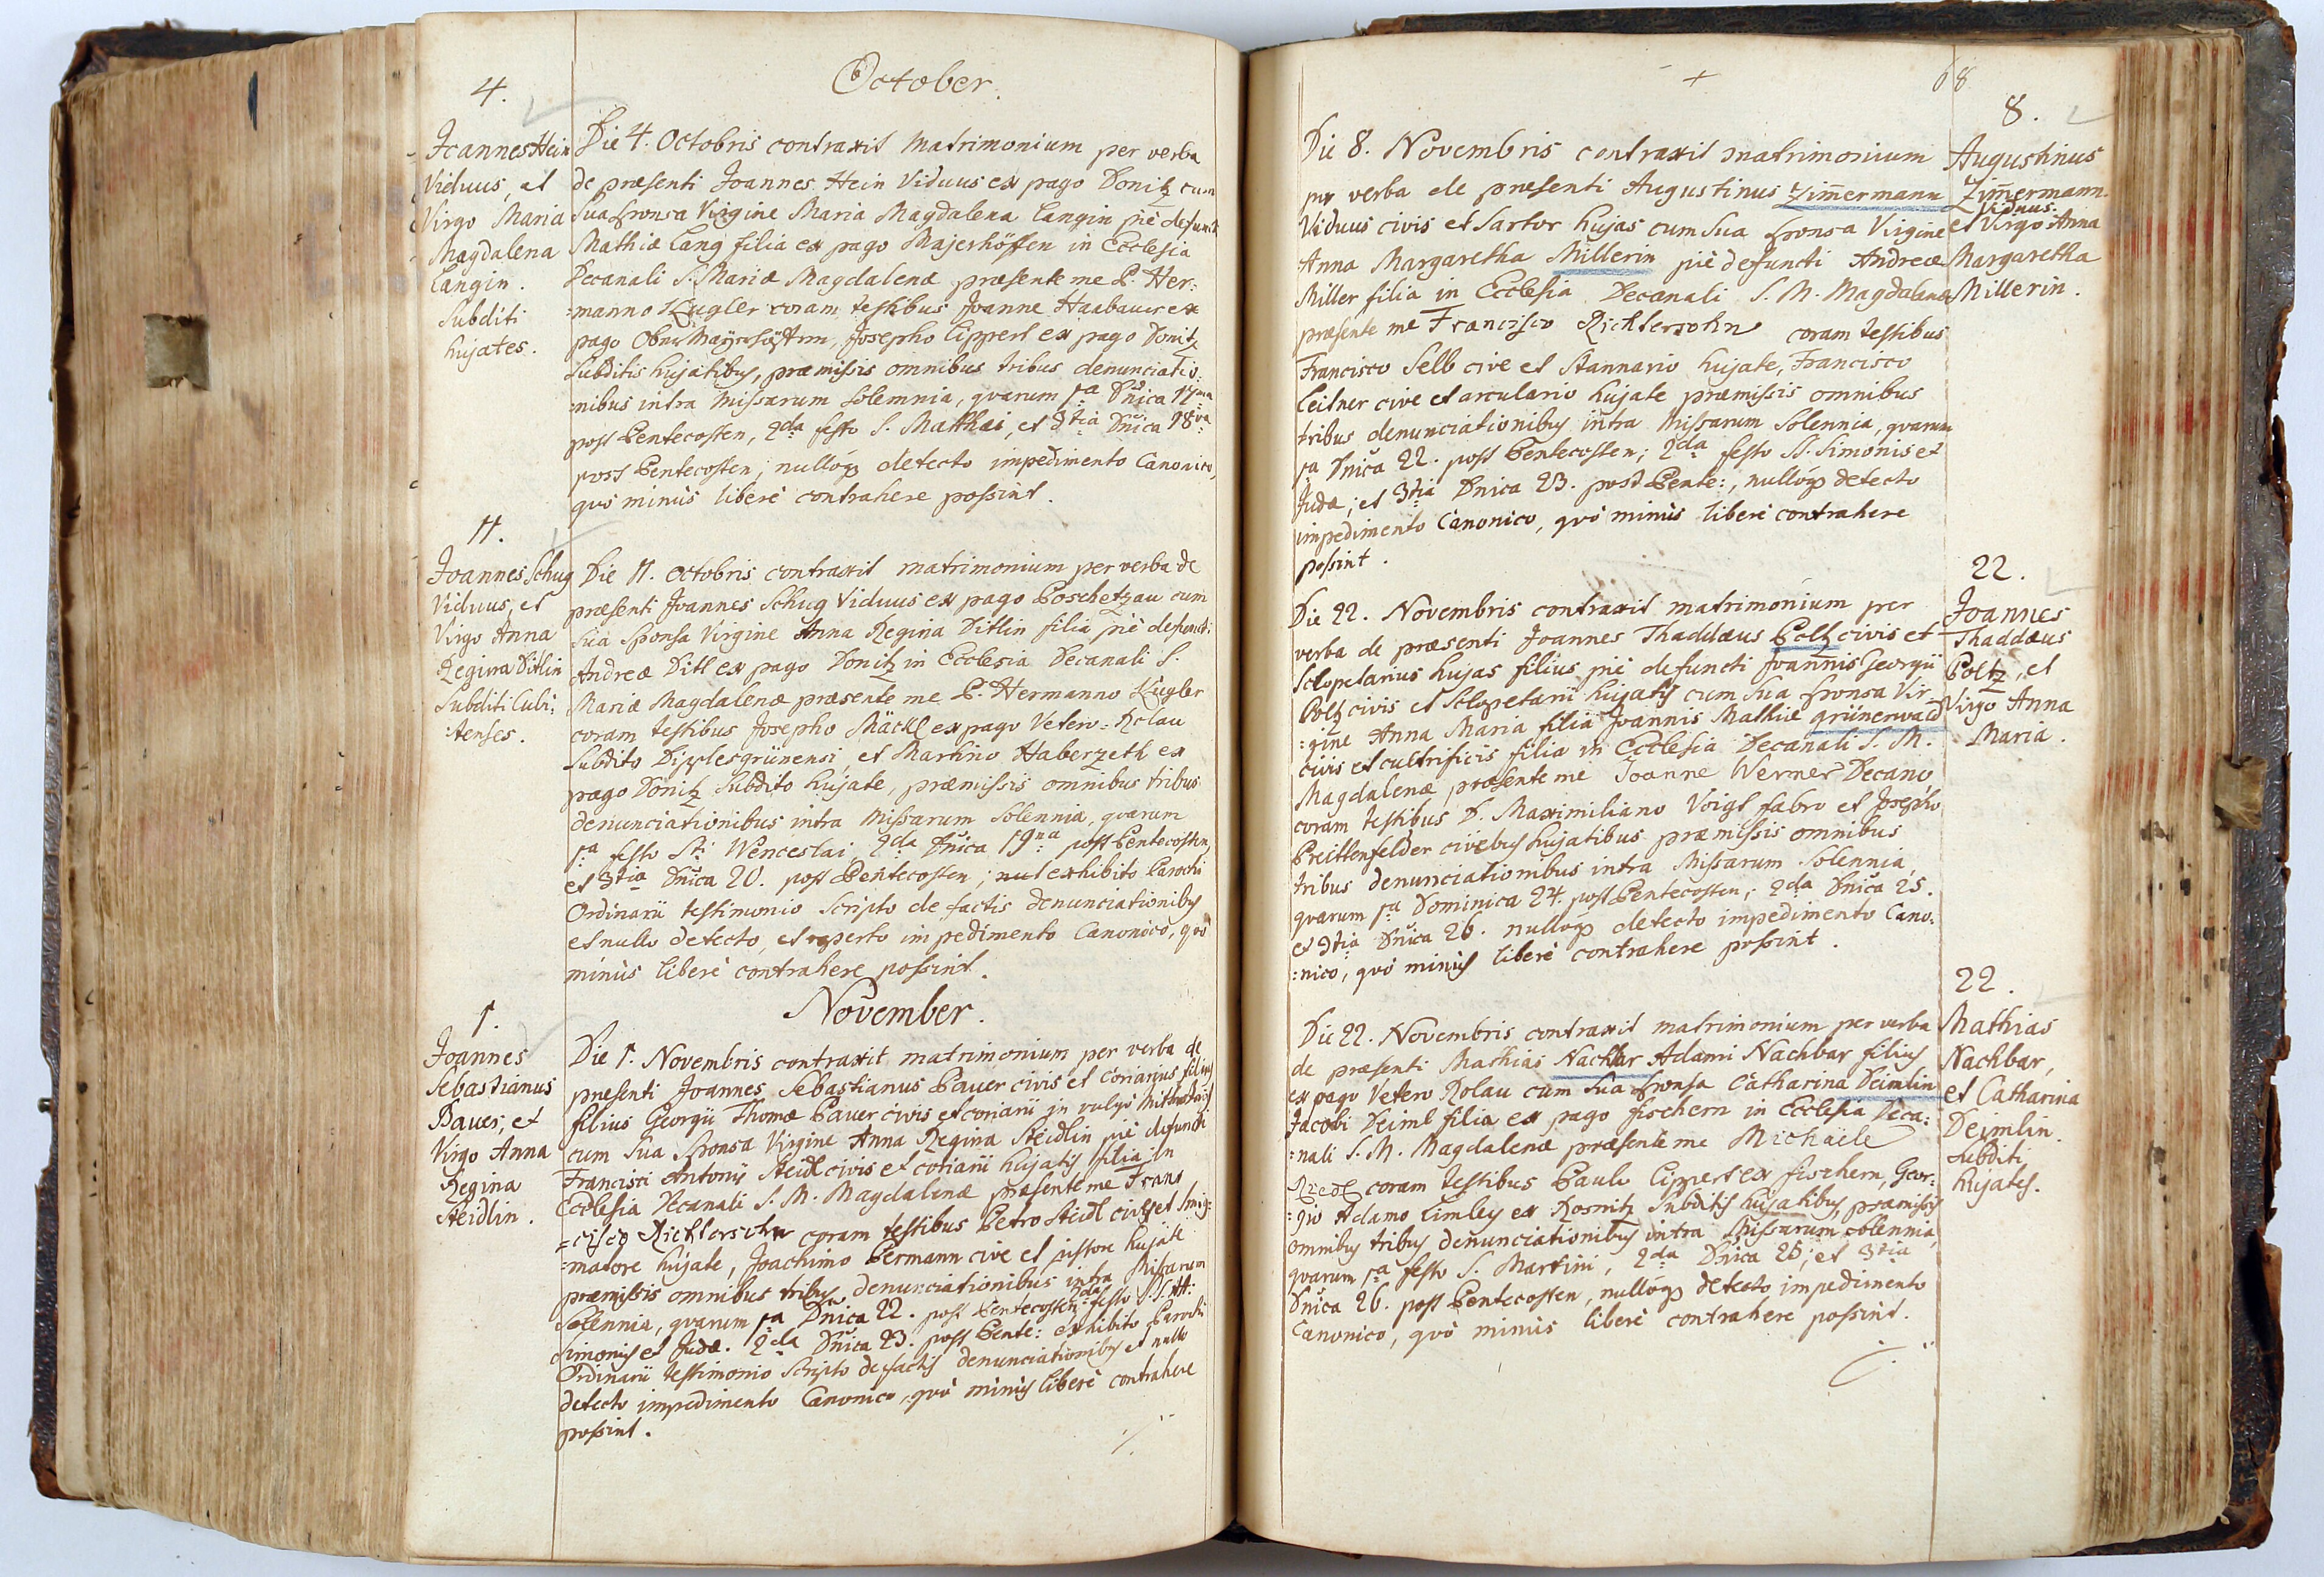 October.
4.
Joannes Hein
Viduus, et
Virgo Maria
Magdalena
Langin.
Subditi
hujates.
Die 4. Octobris contraxit matrimonium per verba
de præsenti Joannes Hein Viduus ex pago Donitz cum
sua sponsa Virgine Maria Magdalena Langin piè defuncti
Mathiæ Lang filia ex pago Majerhöffen in Ecclesia
Decanali S. Mariæ Magdalenæ præsente me P. Her:
:manno Kugler coram testibus Joanne Haabauer ex
pago Ober Maÿrhöffen, Josepho Lippert ex pago Donitz
Subditis hujatibus, præmissis omnibus tribus denunciatio:
:nibus intra Missarum solemnia, quarum 1a Dnica 17ma
post Pentecosten, 2da festo S. Matthæi, et 3tia Dnica 18va
post Pentecosten; nulloq detecto impedimento Canonico,
quo minùs liberè contrahere possint.
11.
Joannes Schug
Viduus, et
Virgo Anna
Regina Ditlin
Subditi Cubi:
:tenses.
Die 11. Octobris contraxit matrimonium per verba de
præsenti Joannes Schug Viduus ex pago Poschetzau cum
sua sponsa Virgine Anna Regina Ditlin filia piè defuncti
Andreæ Ditl ex pago Donitz in Ecclesia Decanali S.
Mariæ Magdalenæ præsente me P. Hermanno Kugler
coram testibus Josepho Mäckl ex pago Vetero-Rolau
Subdito Dipplesgrünensi, et Martino Haberzeth ex
pago Donitz Subdito hujate, præmissis omnibus tribus
denunciationibus intra Missarum Solennia, quarum
1a festo Sti Wenceslai, 2da Dnica 19na post Pentecosten,
et 3tia Dnica 20. post Pentecosten; exhibito Parochi
Ordinarii testimonio scripto de factis denunciationibus
et nullo detecto, et reperto impedimento Canonico, quò
minùs liberè contrahere possint.
November.
1.
Joannes
Sebastianus
Bauer, et
Virgo Anna
Regina
Steidlin.
Die 1. Novembris contraxit matrimonium per verba de
præsenti Joannes Sebastianus Pauer civis et coriarius filius
filius Georgii Thomæ Pauer civis et coriarii in vulgò
cum sua sponsa Virgine Anna Regina Steidlin piè defuncti
Francisci Antonij Steidl civis et coriarii hujatis filia in
Ecclesia Decanali S. M. Magdalenæ præsente me Fran=
=cisco Richtersohn coram testibus Petro Steidl cive et Smig:
:matore hujate, Joachimo Permann cive et pistore hujate
præmissis omnibus tribus denunciationibus intra Missarum
Solennia, quarum 1a Dnica 22. post Pentecosten, 2da festo S.S. A.A.
Simonis et Judæ. 2da Dnica 23. post Pente: exhibito Parochi
Ordinarii testimonio scripto de factis denunciationibus et nullo
detecto impedimento Canonico, quò minùs liberè contrahere
possint.
68
8.
Augustinus
Zim̄ermann.
Viduus.
et Virgo Anna
Margaretha
Millerin.
Die 8. Novembris contraxit matrimonium
per verba de præsenti Augustinus Zim̄ermann
Viduus civis et Sartor hujas cum sua sponsa Virgine
Anna Margaretha Millerin piè defuncti Andreæ
Miller filia in Ecclesia Decanali S. M. Magdalenæ
præsente me Francisco Richtersohn coram testibus
Francisco Selb cive et Stannario hujate, Francisco
Leitner cive et arculario hujate præmissis omnibus
tribus denunciationibus intra Missarum Solennia, quarum
1a Dnica 22. post Pentecosten; 2da festo SS. Simonis et
Judæ; et 3tia Dnica 23. post Pente:, nulloq detecto
impedimento Canonico, quò minùs liberè contrahere
possint.
22.
Joannes
Thaddæus
Poltz, et
Virgo Anna
Maria.
Die 22. Novembris contraxit matrimonium per
verba de præsenti Joannes Thaddæus Poltz civis et
Sclopetarius hujas filius piè defuncti Joannis Georgii
Poltz civis et Sclopetarii hujatis cum sua sponsa Vir:
:gine Anna Maria filia Joannis Mathiæ grünerwald
civis et cultrificis filia in Ecclesia Decanali S. M.
Magdalenæ, præsente me Joanne Werner Decano
coram testibus D. Maximiliano Voigt fabro et Josepho
Preittenfelder civibus hujatibus præmissis omnibus
tribus denunciationibus intra Missarum Solennia,
quarum 1a Dominica 24. post Pentecosten; 2da Dnica 25.
et 3tia Dnica 26. nulloq detecto impedimento Cano:
:nico, quò minùs liberè contrahere possint.
22.
Mathias
Nachbar,
et Catharina
Deimlin.
Subditi
hujates.
Die 22. Novembris contraxit matrimonium per verba
de præsenti Mathias Nachbar Adami Nachbar filius
ex pago Vetero Rolau cum sua sponsa Catharina Deimlin
Jacobi Deiml filia ex pago fischern in Ecclesia Deca:
:nali S. M. Magdalenæ præsente me Michaele
Riedl coram testibus Paulo Lippert ex fischern, Geor:
:gio Adamo Limley ex Rosnitz Subditis hujatibus, præmissis
omnibus tribus denunciationibus intra Missarum solennia,
quarum 1a festo S. Martini, 2da Dnica 25; et 3tia
Dnica 26. post Pentecosten, nulloq detecto impedimento
Canonico, quò minùs liberè contrahere possint.